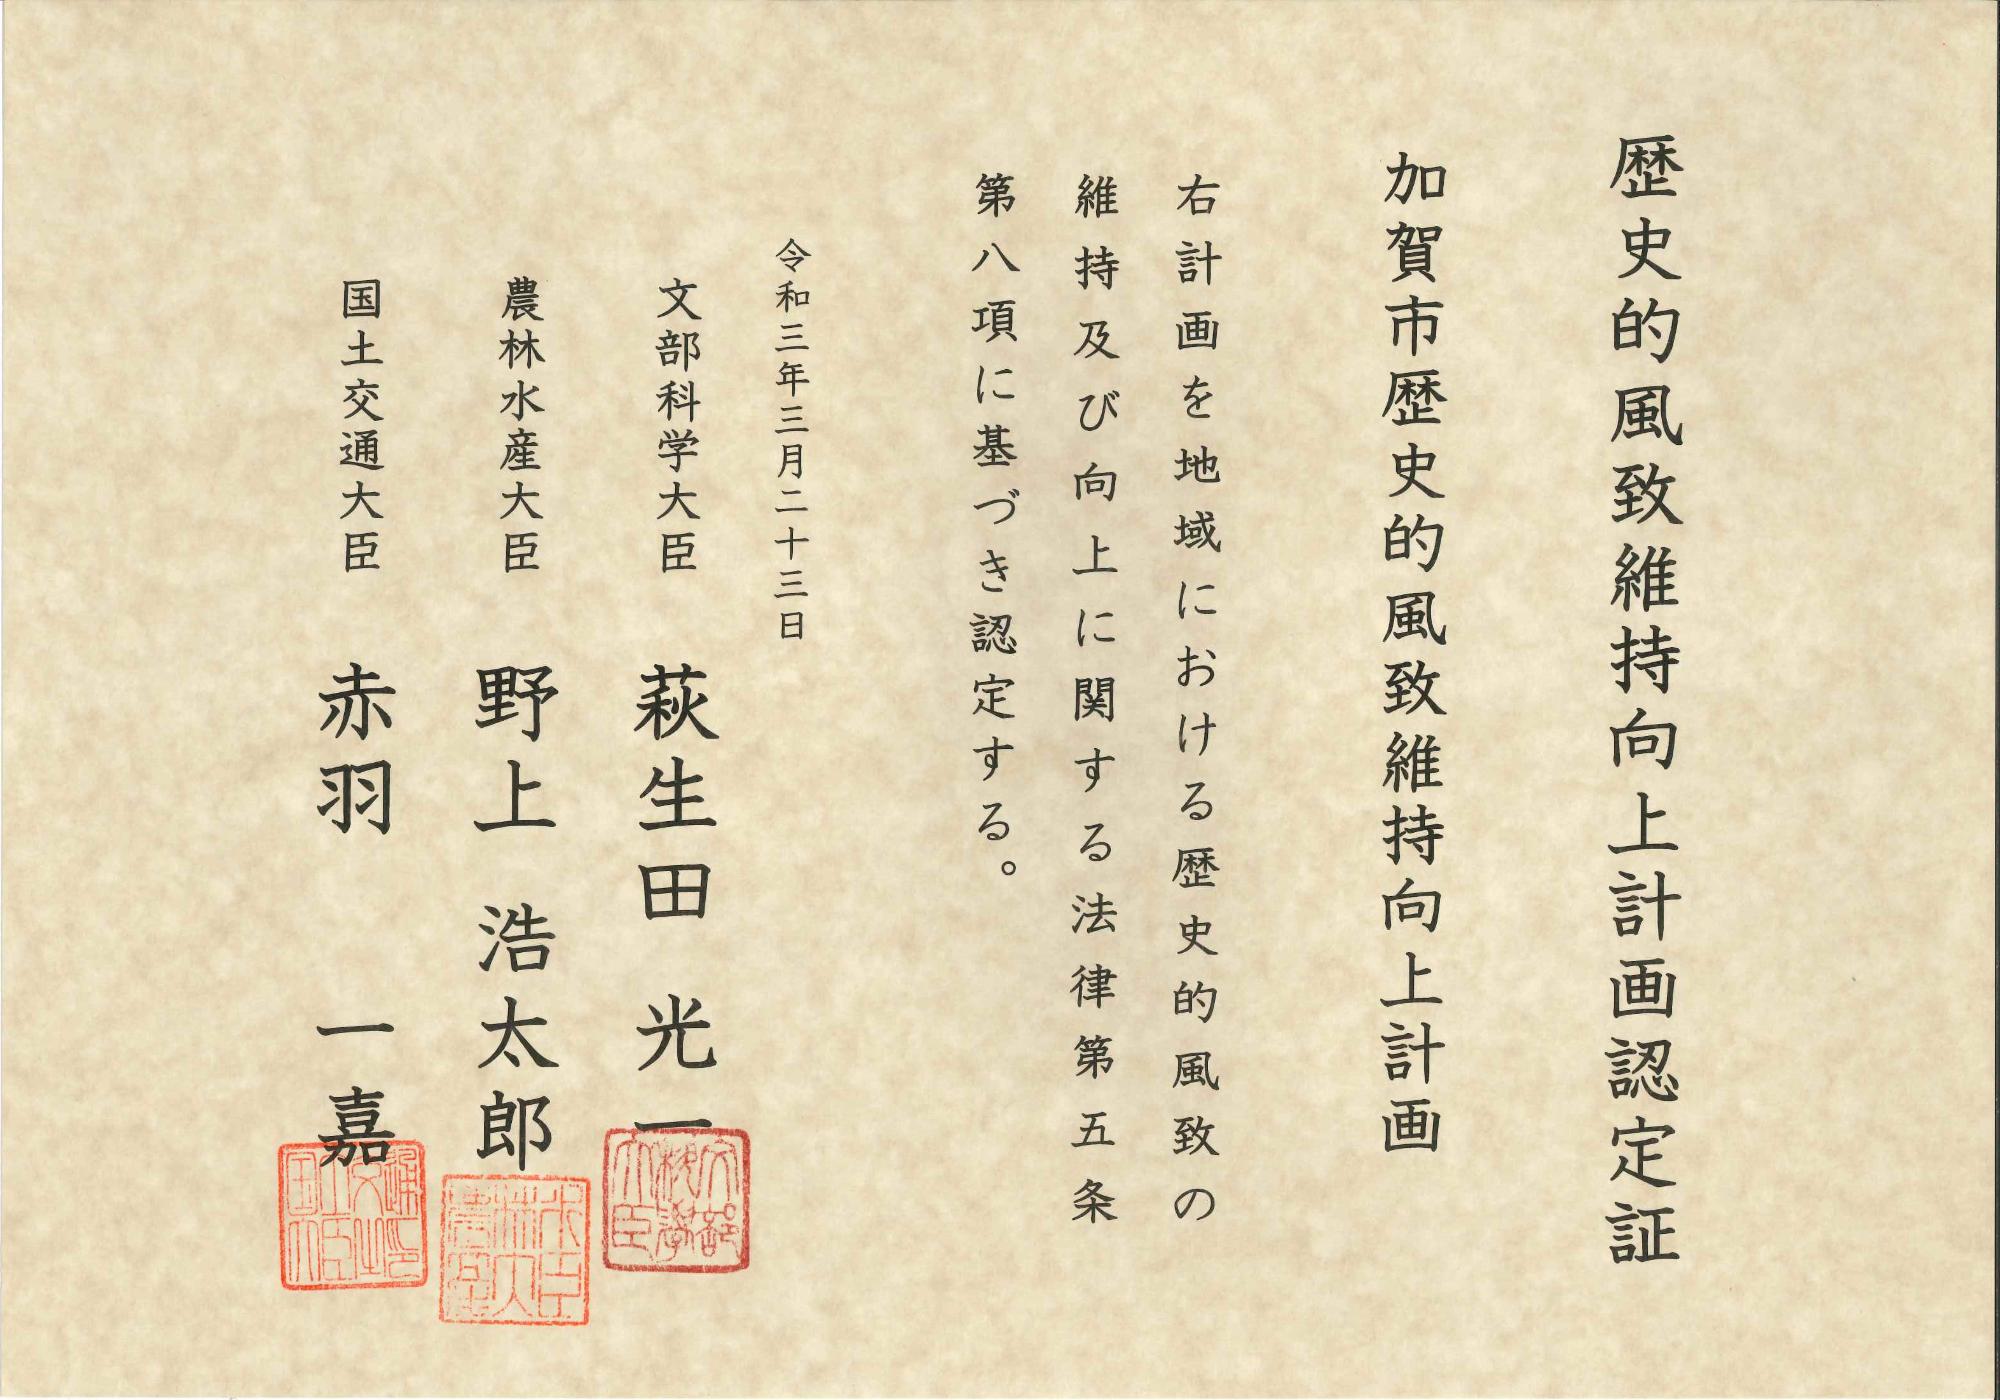 歴史的風致維持向上計画認定証
加賀市歴史的風致維持向上計画
右計画を地域における歴史的風致の
維持及び向上に関する法律第五条
第八項に基づき認定する。
令和三年三月二十三日
文部科学大臣 萩生田 光一
文部科学大臣
農林水産大臣 野上 浩太郎
国土交通大臣 赤羽 一嘉